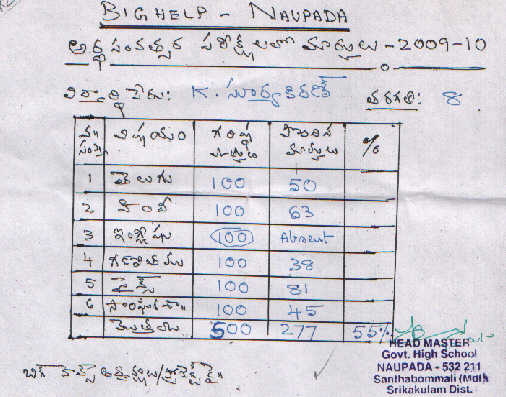 BIG HELP - NAUPADA
అర్థ సంవత్సర పరీక్షలలో మార్కులు - 2009-10
విద్యార్థి పేరు: K. సూర్యకిరణ్ తరగతి: 8
వ. సంఖ్య విషయం గరిష్ఠ మార్కులు పొందిన మార్కులు %
1 తెలుగు 100 50
2 హిందీ 100 63
3 ఇంగ్లీషు 100 Absent
4 గణితము 100 38
5 సైన్స్ 100 81
6 సాంఘీకశా 100 45
మొత్తము 500 277 55%
HEAD MASTER
Govt. High School
NAUPADA - 532 211
Santhabommali (Mdl)
Srikakulam Dist.
బిగ్ హెల్ప్